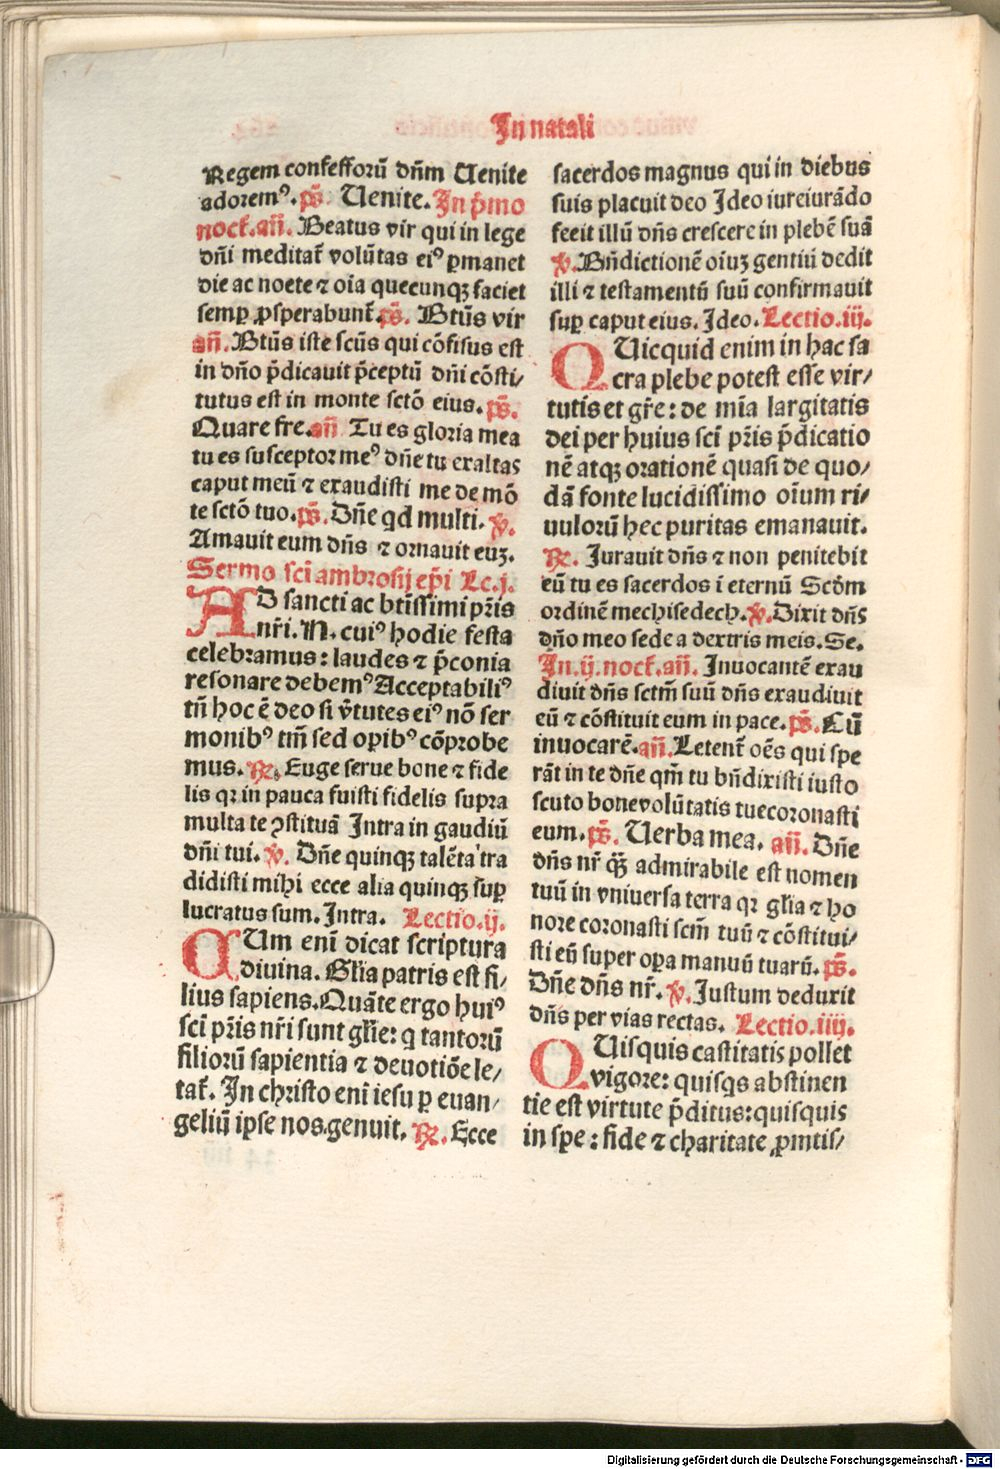 In natali
Regem confessorū dn̄m Uenite
adoremꝰ. ps̄. Uenite. In p̄mo
nocť. an̄. Beatus vir qui in lege
dn̄i meditat̄ volūtas eiꝰ ꝑmanet
die ac nocte ⁊ oīa quecunqꝫ faciet
semꝑ ꝓsperabunt̄. ps̄. Btūs vir
an̄. Btūs iste scūs qui cōfisus est
in dn̄o p̄dicauit p̄ceptū dn̄i cōsti⸗
tutus est in monte sctō eius. ps̄.
Quare fre. an̄ Tu es gloria mea
tu es susceptor meꝰ dn̄e tu exaltas
caput meū ⁊ exaudisti me de mō
te sctō tuo. ps̄. Dn̄e qd multi. ꝟ.
Amauit eum dn̄s ⁊ ornauit euꝫ.
Sermo scī ambrosij ep̄i Lc. j.
AD sancti ac btīssimi pr̄is
nr̄i. N. cuiꝰ hodie festa
celebramus: laudes ⁊ p̄conia
resonare debemꝰ Acceptabiliꝰ
tn̄ hoc ē deo si v̄tutes eiꝰ nō ser
monibꝰ tm̄ sed oꝑibꝰ cōprobe
mus. ℞. Euge serue bone ⁊ fide
lis qꝛ in pauca fuisti fidelis supra
multa te ꝯstituā Intra in gaudiū
dn̄i tui. ꝟ. Dn̄e quinqꝫ talēta tra
didisti mihi ecce alia quinqꝫ suꝑ
lucratus sum. Intra. Lectio. ij.
CUm enī dicat scriptura
diuina. Glīa patris est fi⸗
lius sapiens. Quāte ergo huiꝰ
scī pr̄is nr̄i sunt glīe: q tantorū
filiorū sapientia ⁊ deuotiōe le⸗
tat̄. In christo enī iesu ꝑ euan⸗
geliū ipse nos genuit. ℞. Ecce
sacerdos magnus qui in diebus
suis placuit deo Ideo iureiurādo
fecit illū dn̄s crescere in plebē suā
ꝟ. Bn̄dictionē oīuꝫ gentiū dedit
illi ⁊ testamentū suū confirmauit
suꝑ caput eius. Ideo. Lectio. iij.
QUicquid enim in hac sa
cra plebe potest esse vir⸗
tutis et gr̄e: de mīa largitatis
dei per huius scī pr̄is p̄dicatio
nē atqꝫ orationē quasi de quo⸗
dā fonte lucidissimo oīum ri⸗
uulorū hec puritas emanauit.
℞. Iurauit dn̄s ⁊ non penitebit
eū tu es sacerdos ī eternū Scdm̄
ordinē mechisedech. ꝟ. Dixit dn̄s
dn̄o meo sede a dextris meis. Se.
In. ij. nocť. an̄. Inuocantē exau
diuit dn̄s sctm̄ suū dn̄s exaudiuit
eū ⁊ cōstituit eum in pace. ps̄. Cū
inuocarē. an̄. Letent̄ oēs qui spe
rāt in te dn̄e qm̄ tu bn̄dixisti iusto
scuto bonevolūtatis tue coronasti
eum. ps̄. Uerba mea. an̄. Dn̄e
dn̄s nr̄ qꝫ̄ admirabile est nomen
tuū in vniuersa terra qꝛ glīa ⁊ ho
nore coronasti scm̄ tuū ⁊ cōstitui⸗
sti eū super oꝑa manuū tuarū. ps̄.
Dn̄e dn̄s nr̄. ꝟ. Iustum deduxit
dn̄s per vias rectas. Lectio. iiij.
QUisquis castitatis pollet
vigore: quisqs abstinen
tie est virtute p̄ditus: quisquis
in spe: fide ⁊ charitate ꝓmtis⸗
Digitalisierung gefördert durch die Deutsche Forschungsgemeinschaft - DFG